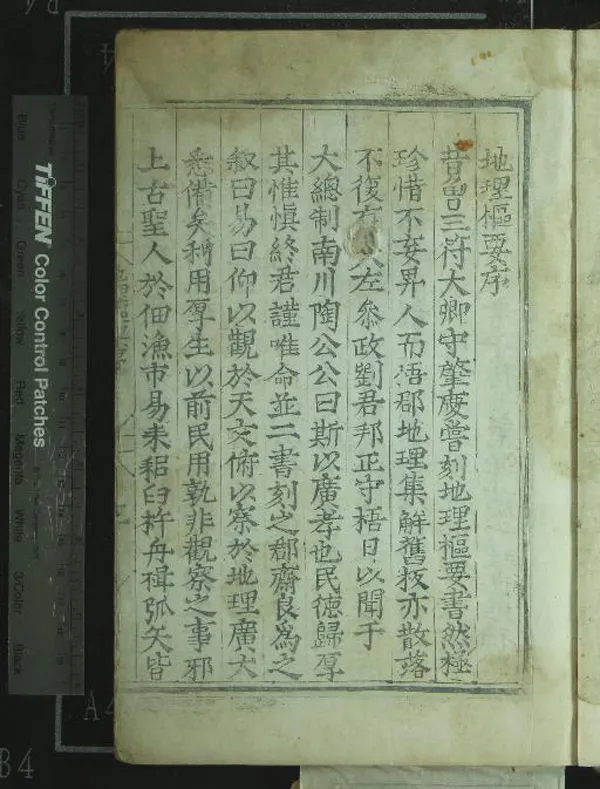 地理樞要序
昔魯三符大卿守肇慶嘗刻地理樞要書然極
珍惜不妄畀人而梧郡地理集解舊板亦散落
不復存 左叅政劉君邦正守梧日以聞于
大總制南川陶公公曰斯以廣孝也民德歸厚
其惟慎終君謹唯命並二書刻之郡齋良爲之
叙曰易曰仰以觀於天文俯以察於地理廣大
悉備矣利用厚生以前民用孰非觀察之事邪
上古聖人於佃漁市易耒耜臼杵舟楫弧矢皆
TIFFEN Color Control Patches
Blue
Cyan
Green
Yellow
Red
Magenta
White
3/Color
Black
A4
B4